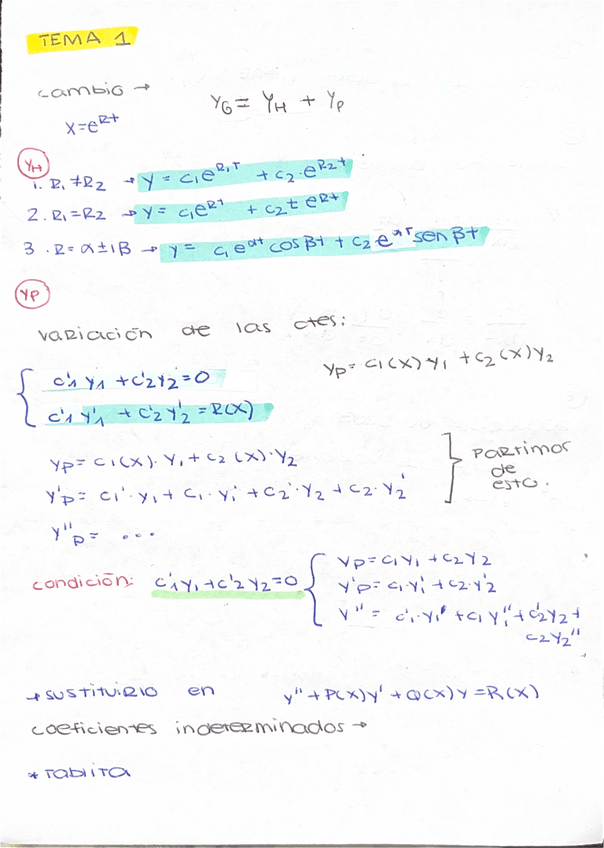 TEMA 1
cambio →
x=e^Rt
y_G = y_H + y_P
y_H
1. R₁≠R₂ → y = c₁e^R₁t + c₂·e^R₂t
2. R₁=R₂ → y = c₁e^Rt + c₂te^Rt
3. R=α±iβ → y = c₁e^αt cosβt + c₂e^αt senβt
y_P
variación de las ctes:
y_P = c₁(x)·y₁ + c₂(x)y₂
c'₁y₁ + c'₂y₂=0
c'₁y'₁ + c'₂y'₂=R(x)
y_P= c₁(x)·y₁+c₂(x)·y₂
y'_P= c₁'·y₁+c₁·y₁'+c₂'·y₂+c₂·y₂'
y''_P= ...
Partimos
de
esto.
condición: c'₁y₁+c'₂y₂=0
y_P=c₁y₁+c₂y₂
y'_P=c₁·y₁'+c₂·y'₂
y''= c'₁·y₁'+c₁y₁''+c'₂y₂+
c₂y₂''
→ sustituirlo en y''+P(x)y'+Q(x)y=R(x)
coeficientes indeterminados →
* Tablita